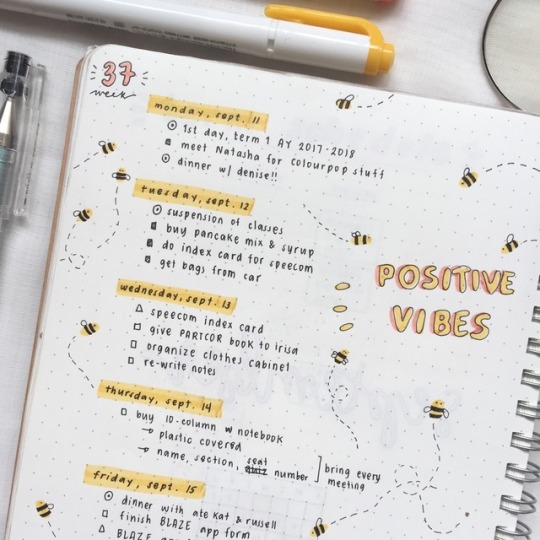 37
week
monday, sept. 11
1st day, term 1 AY 2017-2018
meet Natasha for colourpop stuff
dinner w/ denise!!
tuesday, sept. 12
suspension of classes
buy pancake mix & syrup
do index card for speecom
get bags from car
wednesday, sept. 13
speecom index card
give PARTCOR book to irisa
organize clothes cabinet
re-write notes
POSITIVE
VIBES
thursday, sept. 14
buy 10-column w notebook
→ plastic covered
→ name, section, seat number
bring every
meeting
friday, sept. 15
dinner with ate kat & russell
finish BLAZE app form
BLAZE